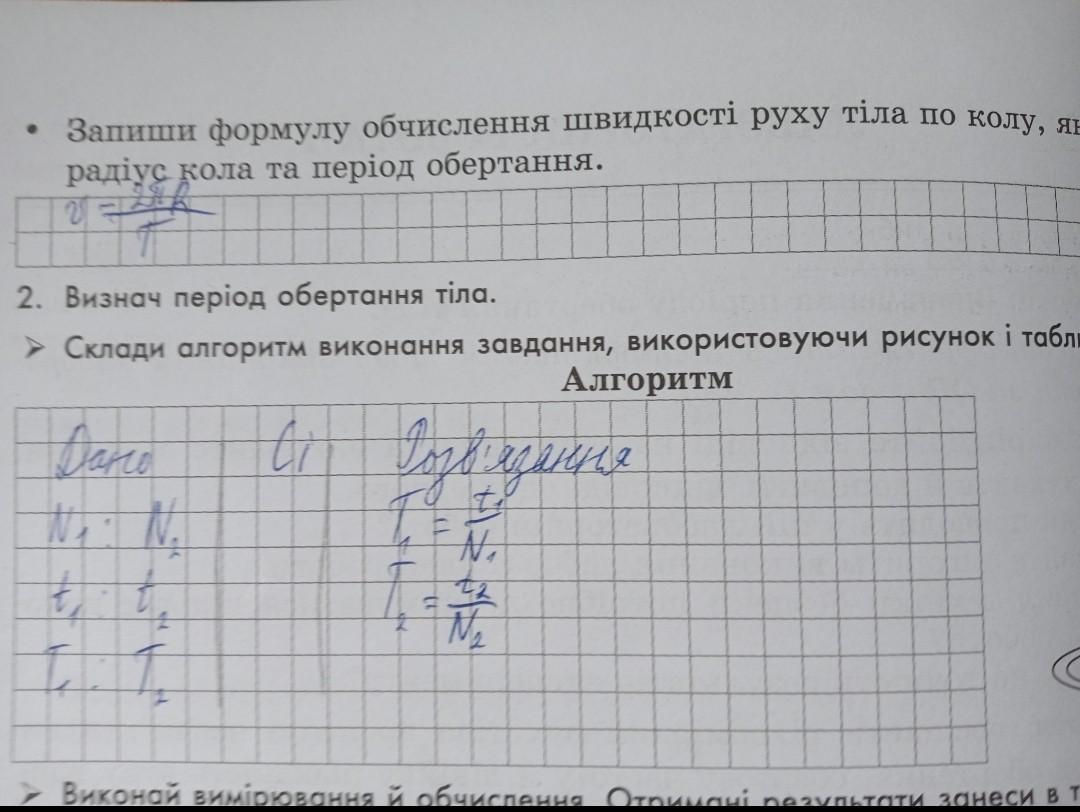 • Запиши формулу обчислення швидкості руху тіла по колу, як
радіус кола та період обертання.
v = 2πR / T
2. Визнач період обертання тіла.
➤ Склади алгоритм виконання завдання, використовуючи рисунок і табли
Алгоритм
Дано Сі Розв'язання
N₁ : N₂ T₁ = t₁ / N₁
t₁ : t₂ T₂ = t₂ / N₂
T₁ : T₂
➤ Виконай вимірювання й обчислення. Отримані результати занеси в т